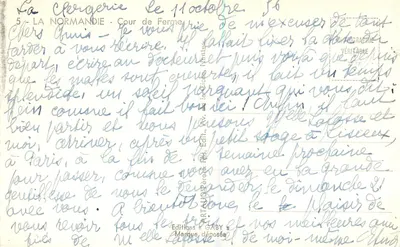 La Bergerie le 11 octobre 56
5 - LA NORMANDIE - Cour de Ferme
Chers Amis - Je vous prie de m'excuser de tant
tarder à vous écrire. Il fallait fixer la date du
départ, écrire au docteur et puis voilà que depuis
que les malles sont ouvertes, il fait un temps
splendide, un soleil narquant qui vous dit :
"Hein comme il fait bon ici !" Enfin, il faut
bien partir et nous pensons, Melle et
moi, arriver, après un petit stage à Lisieux,
à Paris, à la fin de la semaine prochaine
pour passer, comme vous avez eu la grande
gentillesse de nous le demander, le dimanche 21
avec vous. A bientôt donc le plaisir de
vous revoir tous les et vos meilleures ami
tiés de Melle et de moi-même
Editions "GABY"